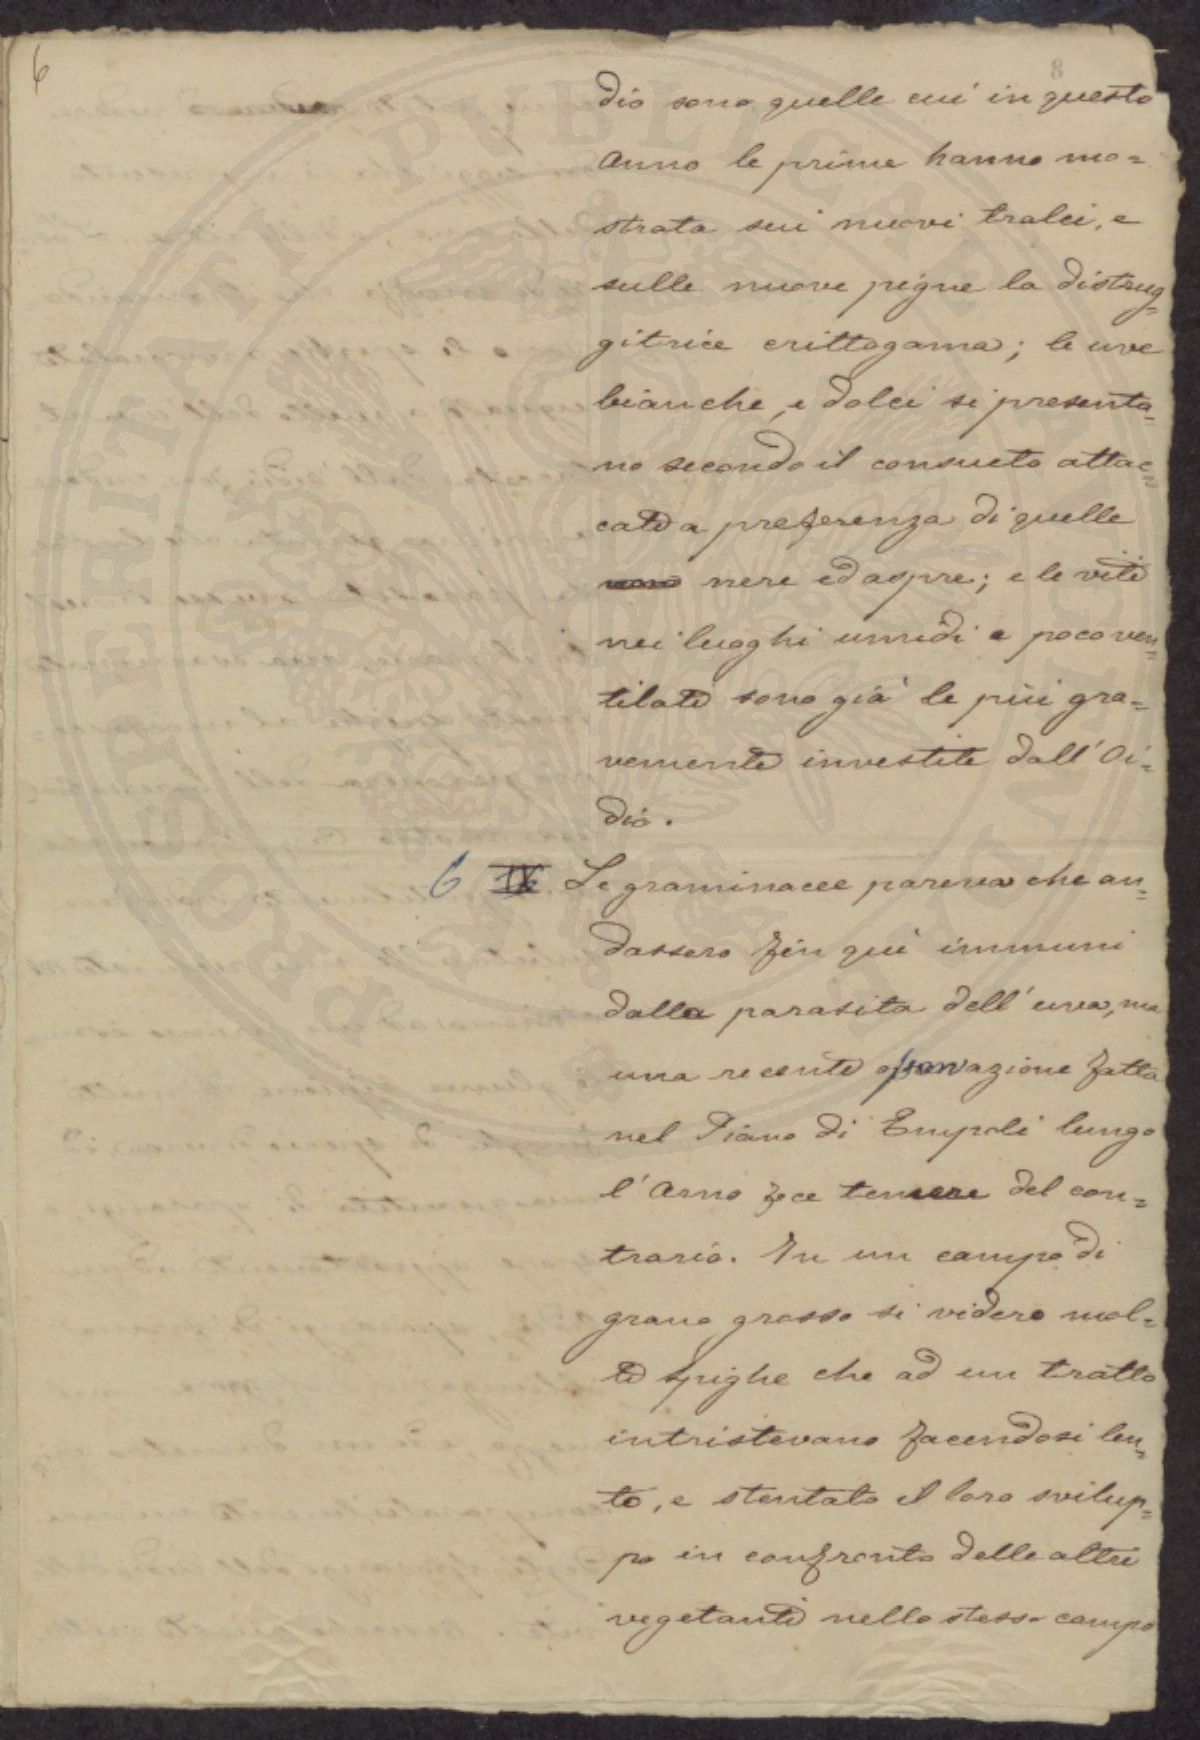 6
8
dio sono quelle cui in questo
anno le prime hanno mo=
strata sui nuovi tralci, e
sulle nuove pigne la distrug=
gitrice crittogama; le uve
bianche, e dolci si presenta=
no secondo il consueto attac=
cate a preferenza di quelle
nere ed aspre; e le viti
nei luoghi umidi e poco ven=
tilati sono già le più gra=
vemente investite dall'Oi=
dio.
6 IX Le graminacee pareva che an=
dassero fin qui immuni
dalla parasita dell'uva, ma
una recente osservazione fatta
nel Piano di Empoli lungo
l'Arno fece temere del con=
trario. In un campo di
grano grosso si videro mol=
te spighe che ad un tratto
intristevano facendosi len=
to, e stentato il loro svilup=
po in confronto delle altre
vegetanti nello stesso campo
PROSPERITATI PVBLICAE AVGENDAE